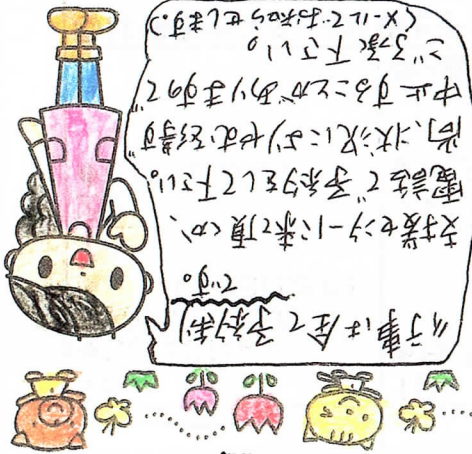 行事は全て予約制
です。
支援センターに来て頂くか、
電話で予約をして下さい。
尚、状況によりやむを得ず
中止することがありますので
ご了承下さい。
(メールでお知らせします。)